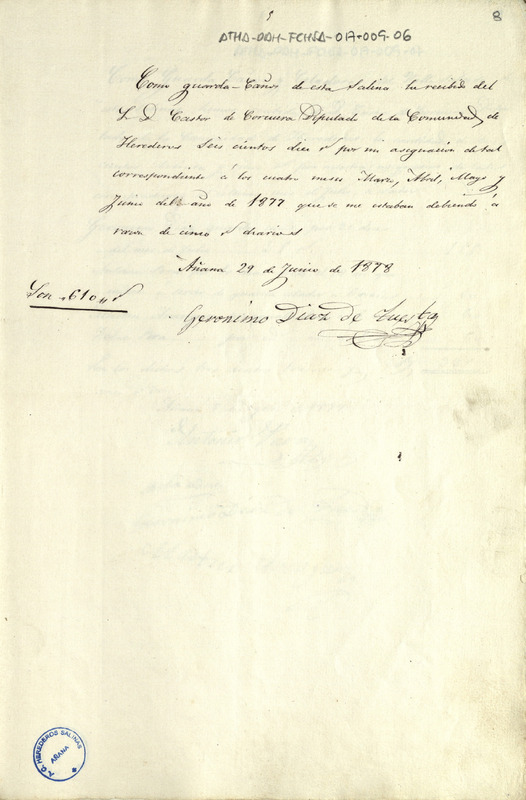 8
ATHA-DAH-FCHSA-017-009-06
Como guarda-Caños de esta Salina he recibido del
S. D Castor de Corcuera Diputado de la Comunidad de
Herederos Seis cientos diez r por mi asignacion de tal
correspondiente á los cuatro meses Marzo, Abril, Mayo y
Junio del año de 1877 que se me estaban debiendo á
razon de cinco r diarios
Añana 29 de Junio de 1878
Son 610 r
Geronimo Diaz de Tuesta
A. G. HEREDEROS SALINAS
AÑANA